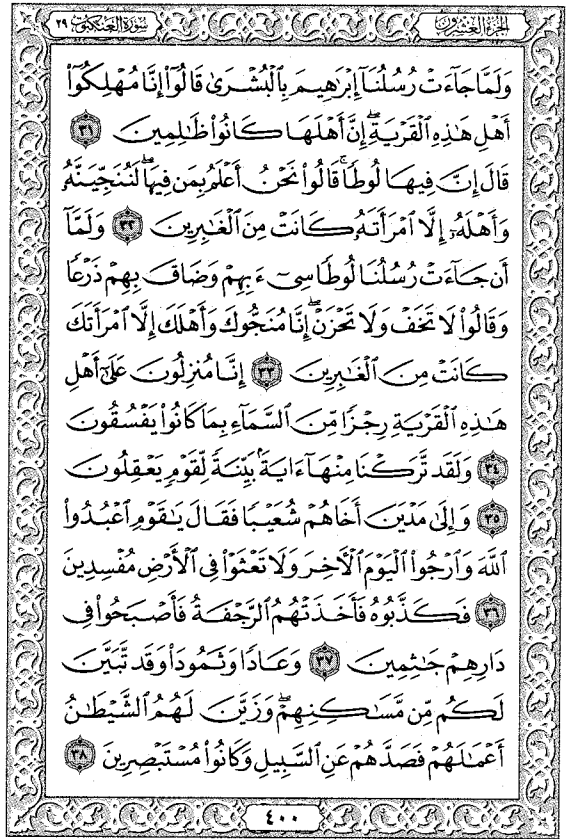 سورة العنكبوت ٢٩
الجزء العشرون
وَلَمَّا جَآءَتْ رُسُلُنَآ إِبْرَٰهِيمَ بِٱلْبُشْرَىٰ قَالُوٓا۟ إِنَّا مُهْلِكُوٓا۟
أَهْلِ هَٰذِهِ ٱلْقَرْيَةِ ۖ إِنَّ أَهْلَهَا كَانُوا۟ ظَٰلِمِينَ ٣١
قَالَ إِنَّ فِيهَا لُوطًا ۚ قَالُوا۟ نَحْنُ أَعْلَمُ بِمَن فِيهَا ۖ لَنُنَجِّيَنَّهُۥ
وَأَهْلَهُۥٓ إِلَّا ٱمْرَأَتَهُۥ كَانَتْ مِنَ ٱلْغَٰبِرِينَ ٣٢ وَلَمَّآ
أَن جَآءَتْ رُسُلُنَا لُوطًا سِىٓءَ بِهِمْ وَضَاقَ بِهِمْ ذَرْعًا
وَقَالُوا۟ لَا تَخَفْ وَلَا تَحْزَنْ ۖ إِنَّا مُنَجُّوكَ وَأَهْلَكَ إِلَّا ٱمْرَأَتَكَ
كَانَتْ مِنَ ٱلْغَٰبِرِينَ ٣٣ إِنَّا مُنزِلُونَ عَلَىٰٓ أَهْلِ
هَٰذِهِ ٱلْقَرْيَةِ رِجْزًا مِّنَ ٱلسَّمَآءِ بِمَا كَانُوا۟ يَفْسُقُونَ
٣٤ وَلَقَد تَّرَكْنَا مِنْهَآ ءَايَةًۢ بَيِّنَةً لِّقَوْمٍ يَعْقِلُونَ
٣٥ وَإِلَىٰ مَدْيَنَ أَخَاهُمْ شُعَيْبًا فَقَالَ يَٰقَوْمِ ٱعْبُدُوا۟
ٱللَّهَ وَٱرْجُوا۟ ٱلْيَوْمَ ٱلْءَاخِرَ وَلَا تَعْثَوْا۟ فِى ٱلْأَرْضِ مُفْسِدِينَ
٣٦ فَكَذَّبُوهُ فَأَخَذَتْهُمُ ٱلرَّجْفَةُ فَأَصْبَحُوا۟ فِى
دَارِهِمْ جَٰثِمِينَ ٣٧ وَعَادًا وَثَمُودَا۟ وَقَد تَّبَيَّنَ
لَكُم مِّن مَّسَٰكِنِهِمْ ۖ وَزَيَّنَ لَهُمُ ٱلشَّيْطَٰنُ
أَعْمَٰلَهُمْ فَصَدَّهُمْ عَنِ ٱلسَّبِيلِ وَكَانُوا۟ مُسْتَبْصِرِينَ ٣٨
٤٠٠